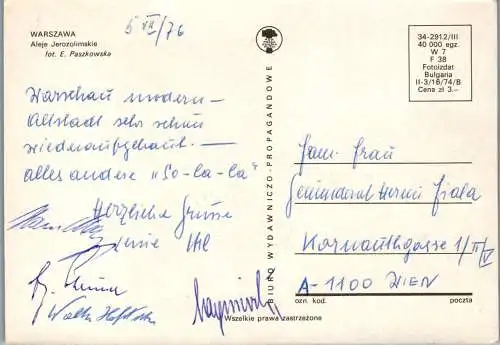 WARSZAWA
Aleje Jerozolimskie
fot. E. Paszkowska
5 VII/76
34-2912/III
40 000 egz.
W 7
F 38
Fotoizdat
Bulgaria
II-3/16/74/B
Cena zł 3.—
Warschau modern –
Altstadt sehr schön
wiederaufgebaut. —
alles andere „So-la-la“
Herzliche Grüsse
BIURO WYDAWNICZO-PROPAGANDOWE
Fam. Frau
Gemeinderat Fiala
Kornauthgasse 1/II/V
A-1100 WIEN
ozn. kod.
poczta
Wszelkie prawa zastrzeżone